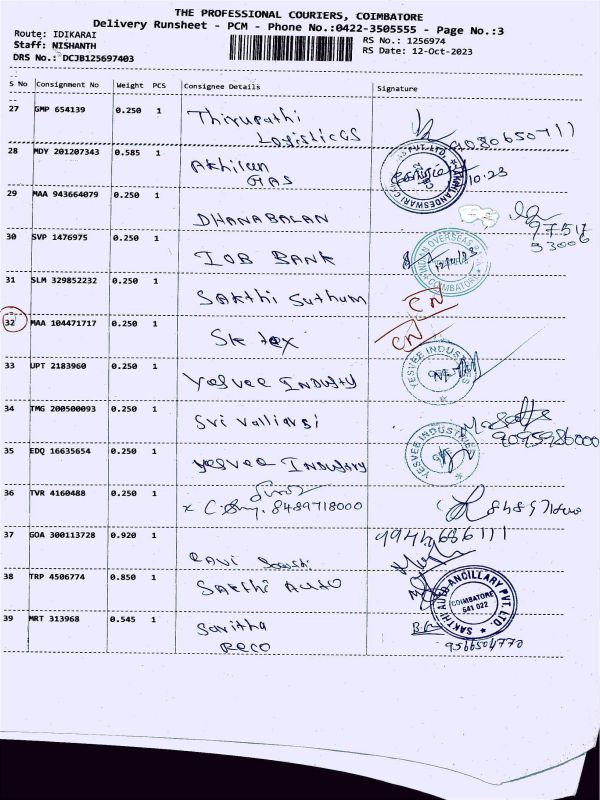 THE PROFESSIONAL COURIERS, COIMBATORE
Delivery Runsheet - PCM - Phone No.:0422-3505555 - Page No.:3
Route: IDIKARAI
Staff: NISHANTH
DRS No.: DCJB125697403
RS No.: 1256974
RS Date: 12-Oct-2023
S No Consignment No Weight PCS Consignee Details Signature
27 GMP 654139 0.250 1 Thirupathi
Logistics
28 MDY 201207343 0.585 1 Akhilan
GAS
10.23
29 MAA 943664079 0.250 1 DHANABALAN
9757
53006
30 SVP 1476975 0.250 1 IOB BANK
INDIAN OVERSEAS BANK
COIMBATORE
31 SLM 329852232 0.250 1 Sakthi Suthum
CN
32 MAA 104471717 0.250 1 Sk tex
CN
33 UPT 2183960 0.250 1 Yesvee Industry
YESVEE INDUSTRIES
34 TMG 200500093 0.250 1 Sri Valliansi
35 EDQ 16635654 0.250 1 Yesvee Industry
YESVEE INDUSTRIES
36 TVR 4160488 0.250 1
8489718000
37 GOA 300113728 0.920 1 RAVI
9944686111
38 TRP 4506774 0.850 1 SAKTHI AUTO
SAKTHI AUTO ANCILLARY PVT. LTD.
COIMBATORE
641 022
39 MRT 313968 0.545 1 Savitha
RECO
9566504770